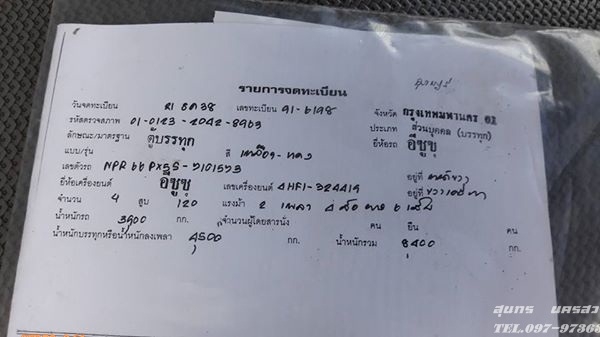 รายการจดทะเบียน
วันจดทะเบียน 21 ธค 38 เลขทะเบียน 91-6198 จังหวัด กรุงเทพมหานคร 01
รหัสตรวจสภาพ 01-0123-2042-8963 ประเภท ส่วนบุคคล (บรรทุก)
ลักษณะ/มาตรฐาน ตู้บรรทุก ยี่ห้อรถ อีซูซุ
แบบ/รุ่น สี เหลือง-แดง
เลขตัวรถ NPR66PXSS-7101573 อยู่ที่
ยี่ห้อเครื่องยนต์ อีซูซุ เลขเครื่องยนต์ 4HF1-324419 อยู่ที่
จำนวน 4 สูบ 120 แรงม้า 2 เพลา 4 ล้อ ยาง 6 เส้น
น้ำหนักรถ 3900 กก. จำนวนผู้โดยสารนั่ง คน ยืน คน
น้ำหนักบรรทุกหรือน้ำหนักลงเพลา 4500 กก. น้ำหนักรวม 8400 กก.
สุนทร นครสว
TEL.097-97368